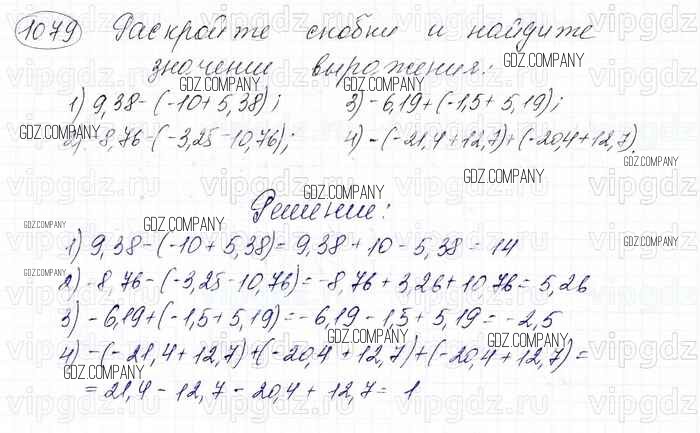 1079 Раскройте скобки и найдите
значение выражения:
1) 9,38-(-10+5,38); 3) -6,19+(-1,5+5,19);
2) -8,76-(-3,25-10,76); 4) -(-21,4+12,7)+(-20,4+12,7).
Решение:
1) 9,38-(-10+5,38)=9,38+10-5,38=14
2) -8,76-(-3,25-10,76)=-8,76+3,26+10,76=5,26
3) -6,19+(-1,5+5,19)=-6,19-1,5+5,19=-2,5
4) -(-21,4+12,7)+(-20,4+12,7)+(-20,4+12,7)=
=21,4-12,7-20,4+12,7=1
GDZ.COMPANY
vipgdz.ru